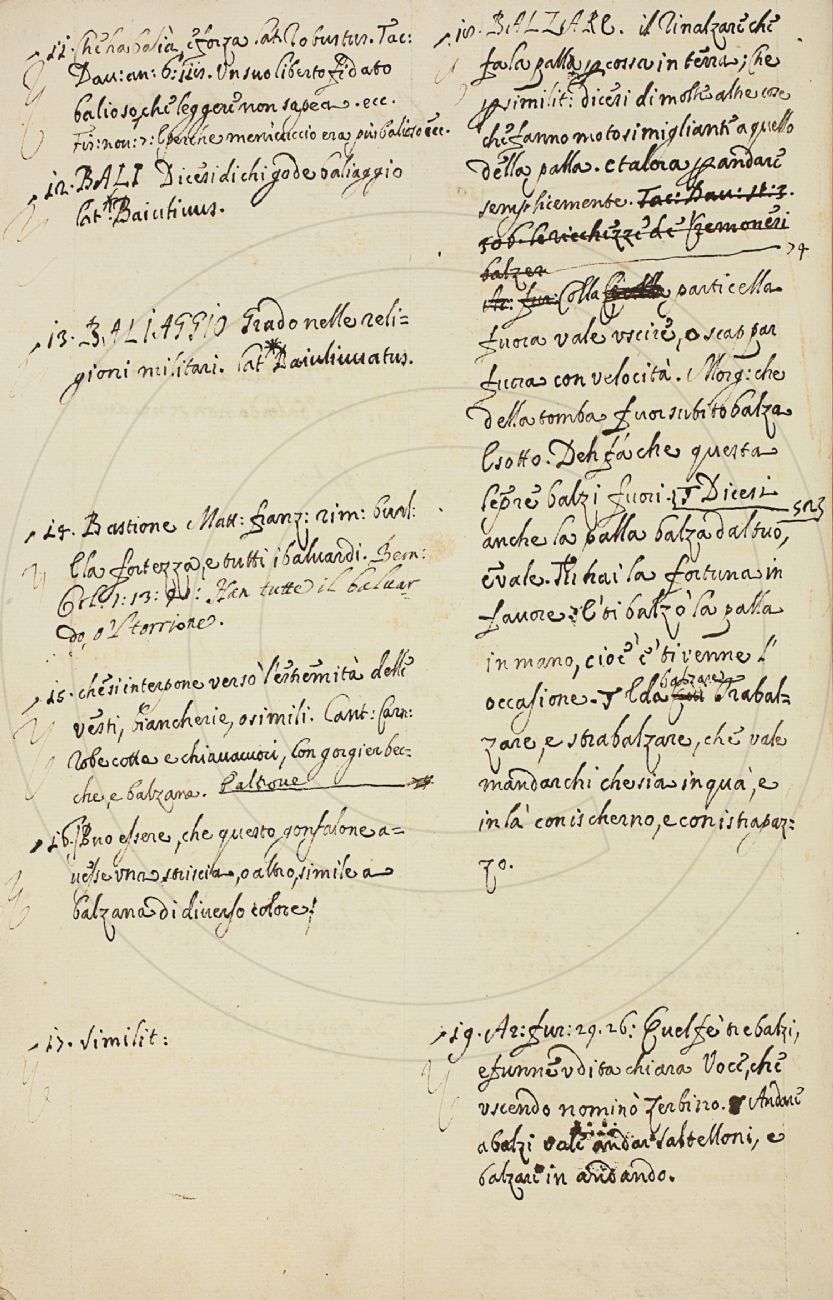 11. Che ha balìa, e forza. Lat. Robustus. Tac:
Dav: an: 6: 115. Un suo liberto fidato
balioso, che leggere non sapea. ecc.
Fir: nov: 7: E perchè menicuccio era più balioso ecc.
12. BALI Dicesi di chi gode baliaggio
Lat. Baiulivus.
13. BALIAGGIO Grado nelle reli=
gioni militari. Lat. Baiulivatus.
14. Bastione Matt: franz: rim: burl:
E la fortezza, e tutti i baluardi. Bern:
Orl: 1: 13: Han tutte il baluar
do, o 'l torrione.
15. che si interpone verso l'estremità delle
vesti, biancherie, o simili. Cant: Carn:
Robe cotte e chiavacuori, Con gorgier bec=
che, e balzana.
16. Può essere, che questo gonfalone a=
vesse una striscia, o altro, simile a
balzana di diverso colore
17. Similit:
18. BALZARE. il Rinalzare che
fa la palla p cossa in terra; che
p similit: dicesi di molte altre cose
che fanno moto simigliante a quello
della palla. e talora p andare
semplicemente. Tac: Dav: st: 3.
306. le ricchezze de Cremonesi
balzer
Ar: fur: Colla particella
fuora vale uscire, o scappar
fuora con velocità. Morg: che
della tomba fuor subito balza
E sotto. Deh fà che questa
lepre balzi fuori. Dicesi
anche la palla balza dal tuo,
e vale. Tu hai la fortuna in
favore; e 'ti balzò la palla
in mano, cioè è 'ti venne l'
occasione. E da balzare Trabal=
zare, e strabalzare, che vale
mandar chi che sia in quà, e
in là con ischerno, e con istrapaz=
zo.
19. Ar: fur: 29. 26: Quel fè tre balzi,
e funne udita chiara Voce, che
uscendo nominò Zerbino. Andare
a balzi vale andar Saltelloni, e
balzare in andando.